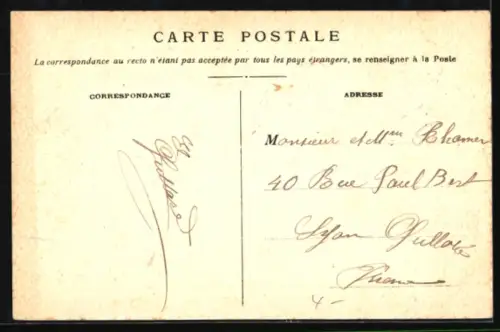 CARTE POSTALE
La correspondance au recto n'étant pas acceptée par tous les pays étrangers, se renseigner à la Poste
CORRESPONDANCE
ADRESSE
Monsieur et Mme
40 Rue Paul Bert
Lyon